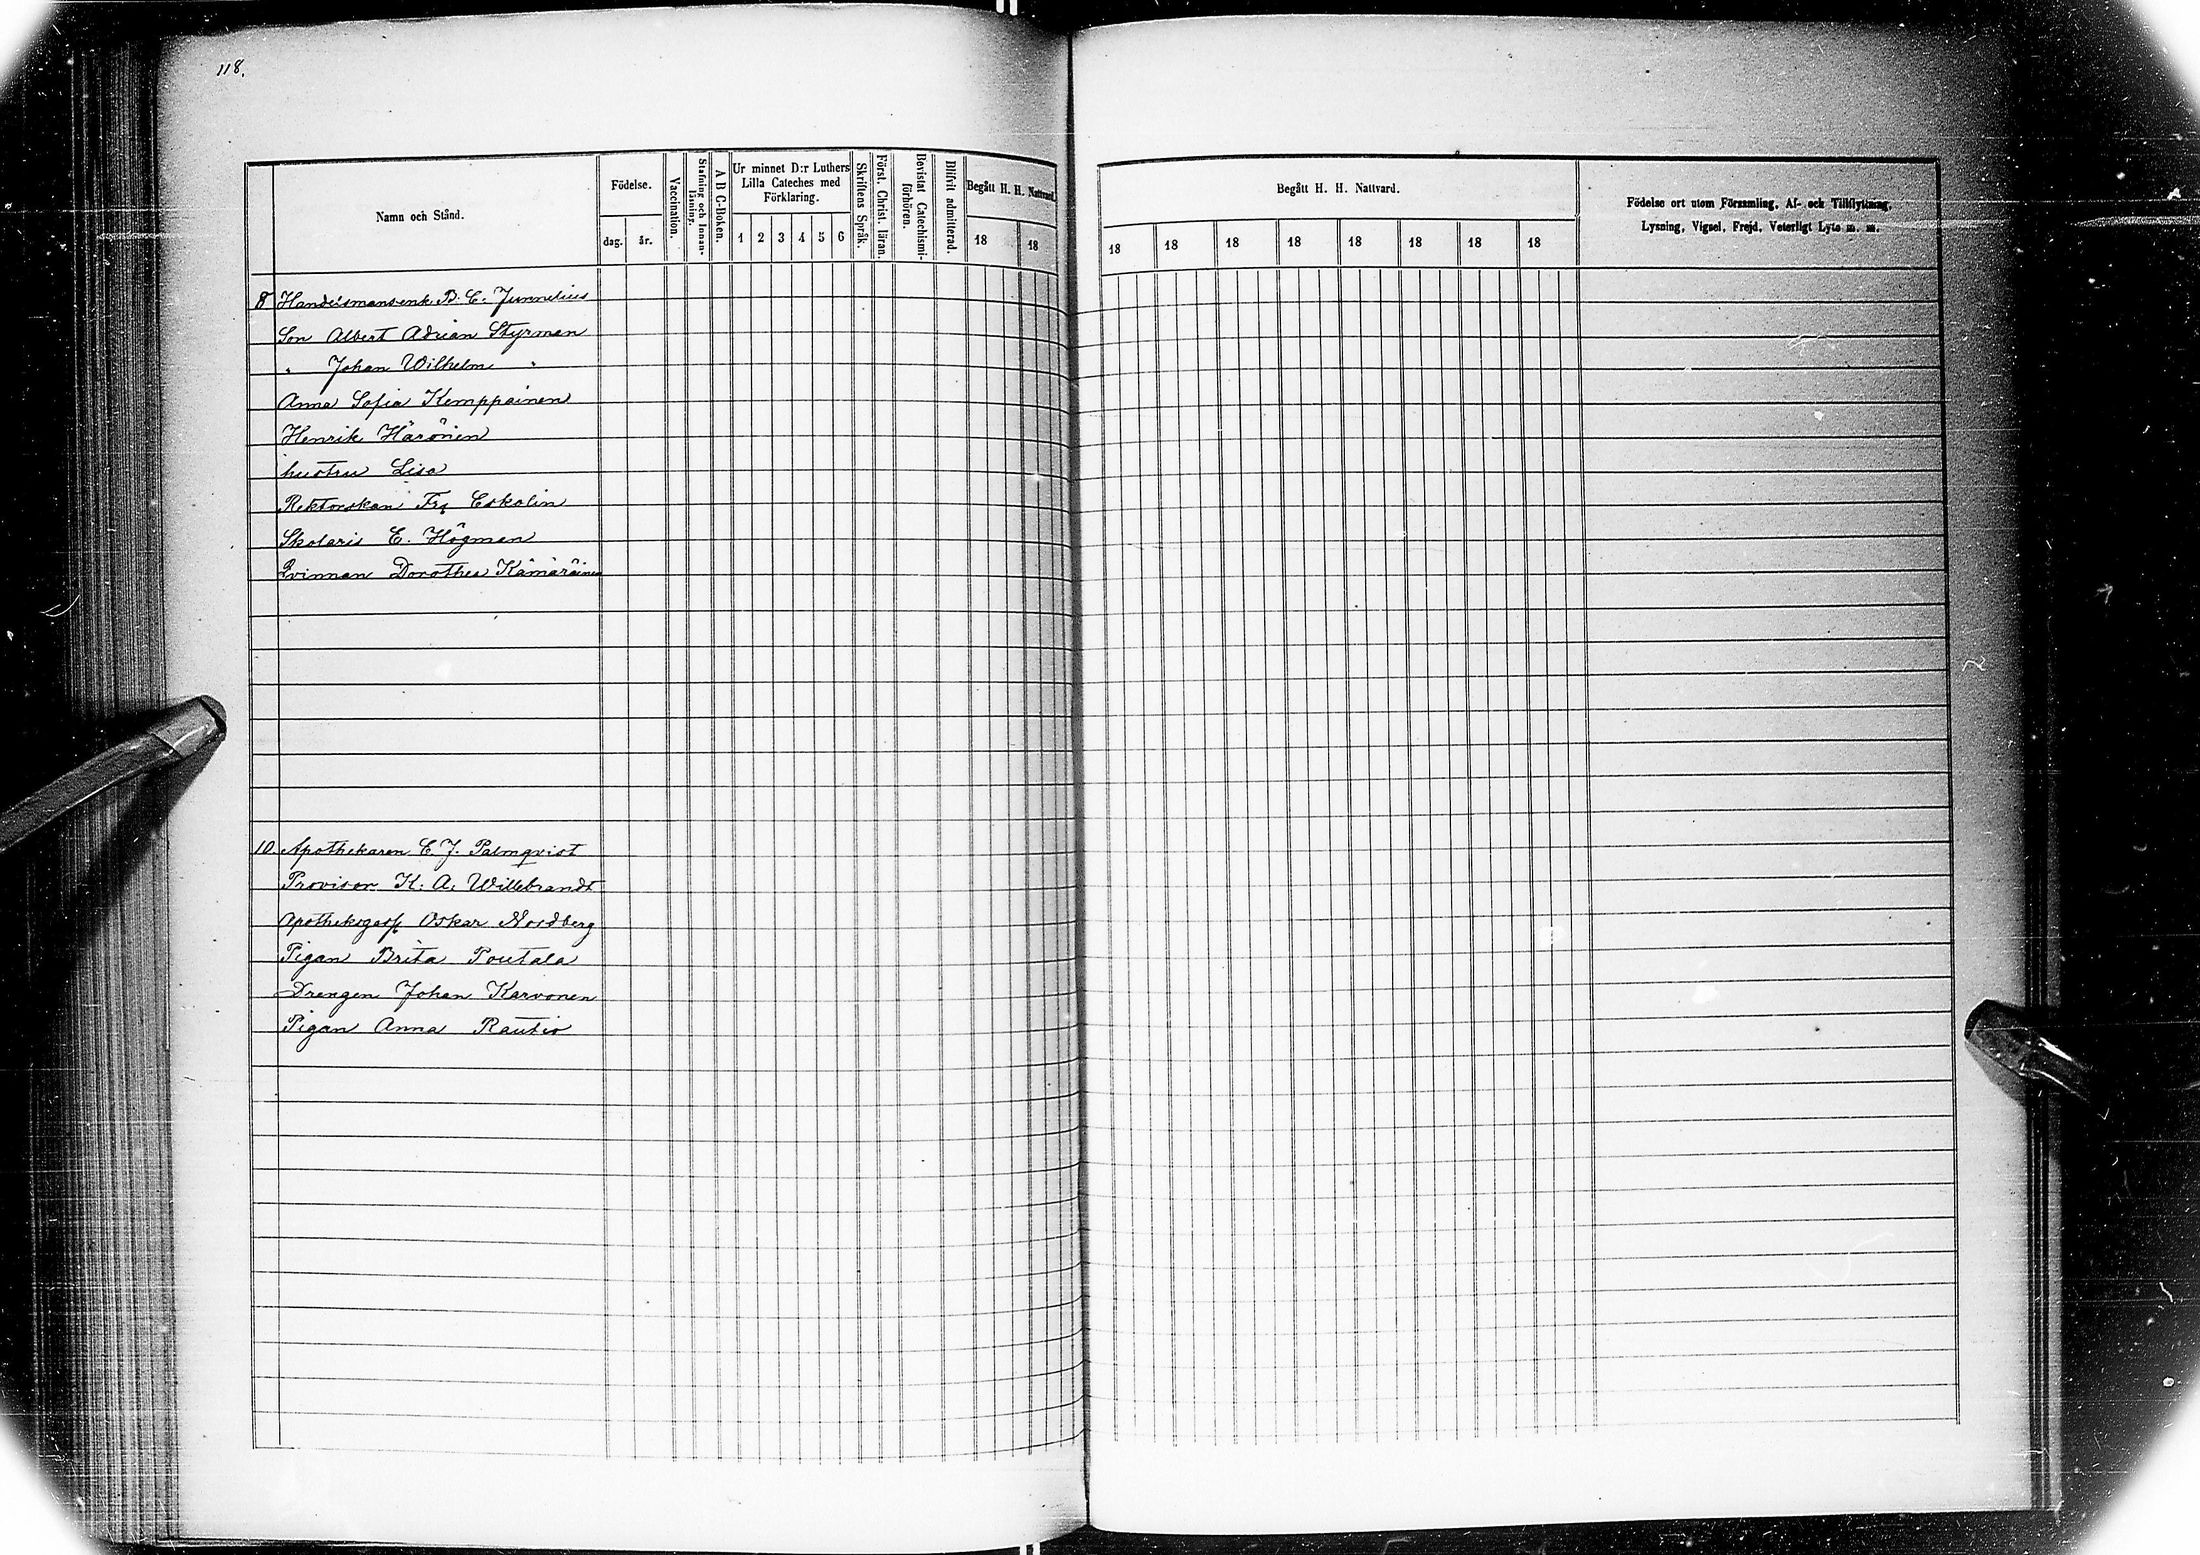 118.
Namn och Stånd.
Födelse.
dag.
år.
Vaccination.
Stafning och Innan-
läsning.
A B C-Boken.
Ur minnet D:r Luthers
Lilla Cateches med
Förklaring.
1 2 3 4 5 6
Skriftens Språk.
Först. Christ. läran.
Bevistat Catechismi-
förhören.
Blifvit admitterad.
Begått H. H. Nattvard.
18 18
Begått H. H. Nattvard.
18 18 18 18 18 18 18 18
Födelse ort utom Församling, Af- och Tillflyttning,
Lysning, Vigsel, Frejd, Veterligt Lyte m. m.
8 Handelsmansenk B. C. Junnelius
Son Albert Adrian Styrman
" Johan Wilhelm "
Anna Sofia Kemppainen
Henrik Härönen
hustru Lisa
Rektorskan Fr. Eskolin
Skolaris E. Högman
Qvinnan Dorothea Kämäräinen
10 Apothekaren C. J. Palmqvist
Provisor K: A: Willebrandt
Oskar Nordberg
Pigan Brita Poutala
Drengen Johan Karvonen
Pigan Anna Rautio